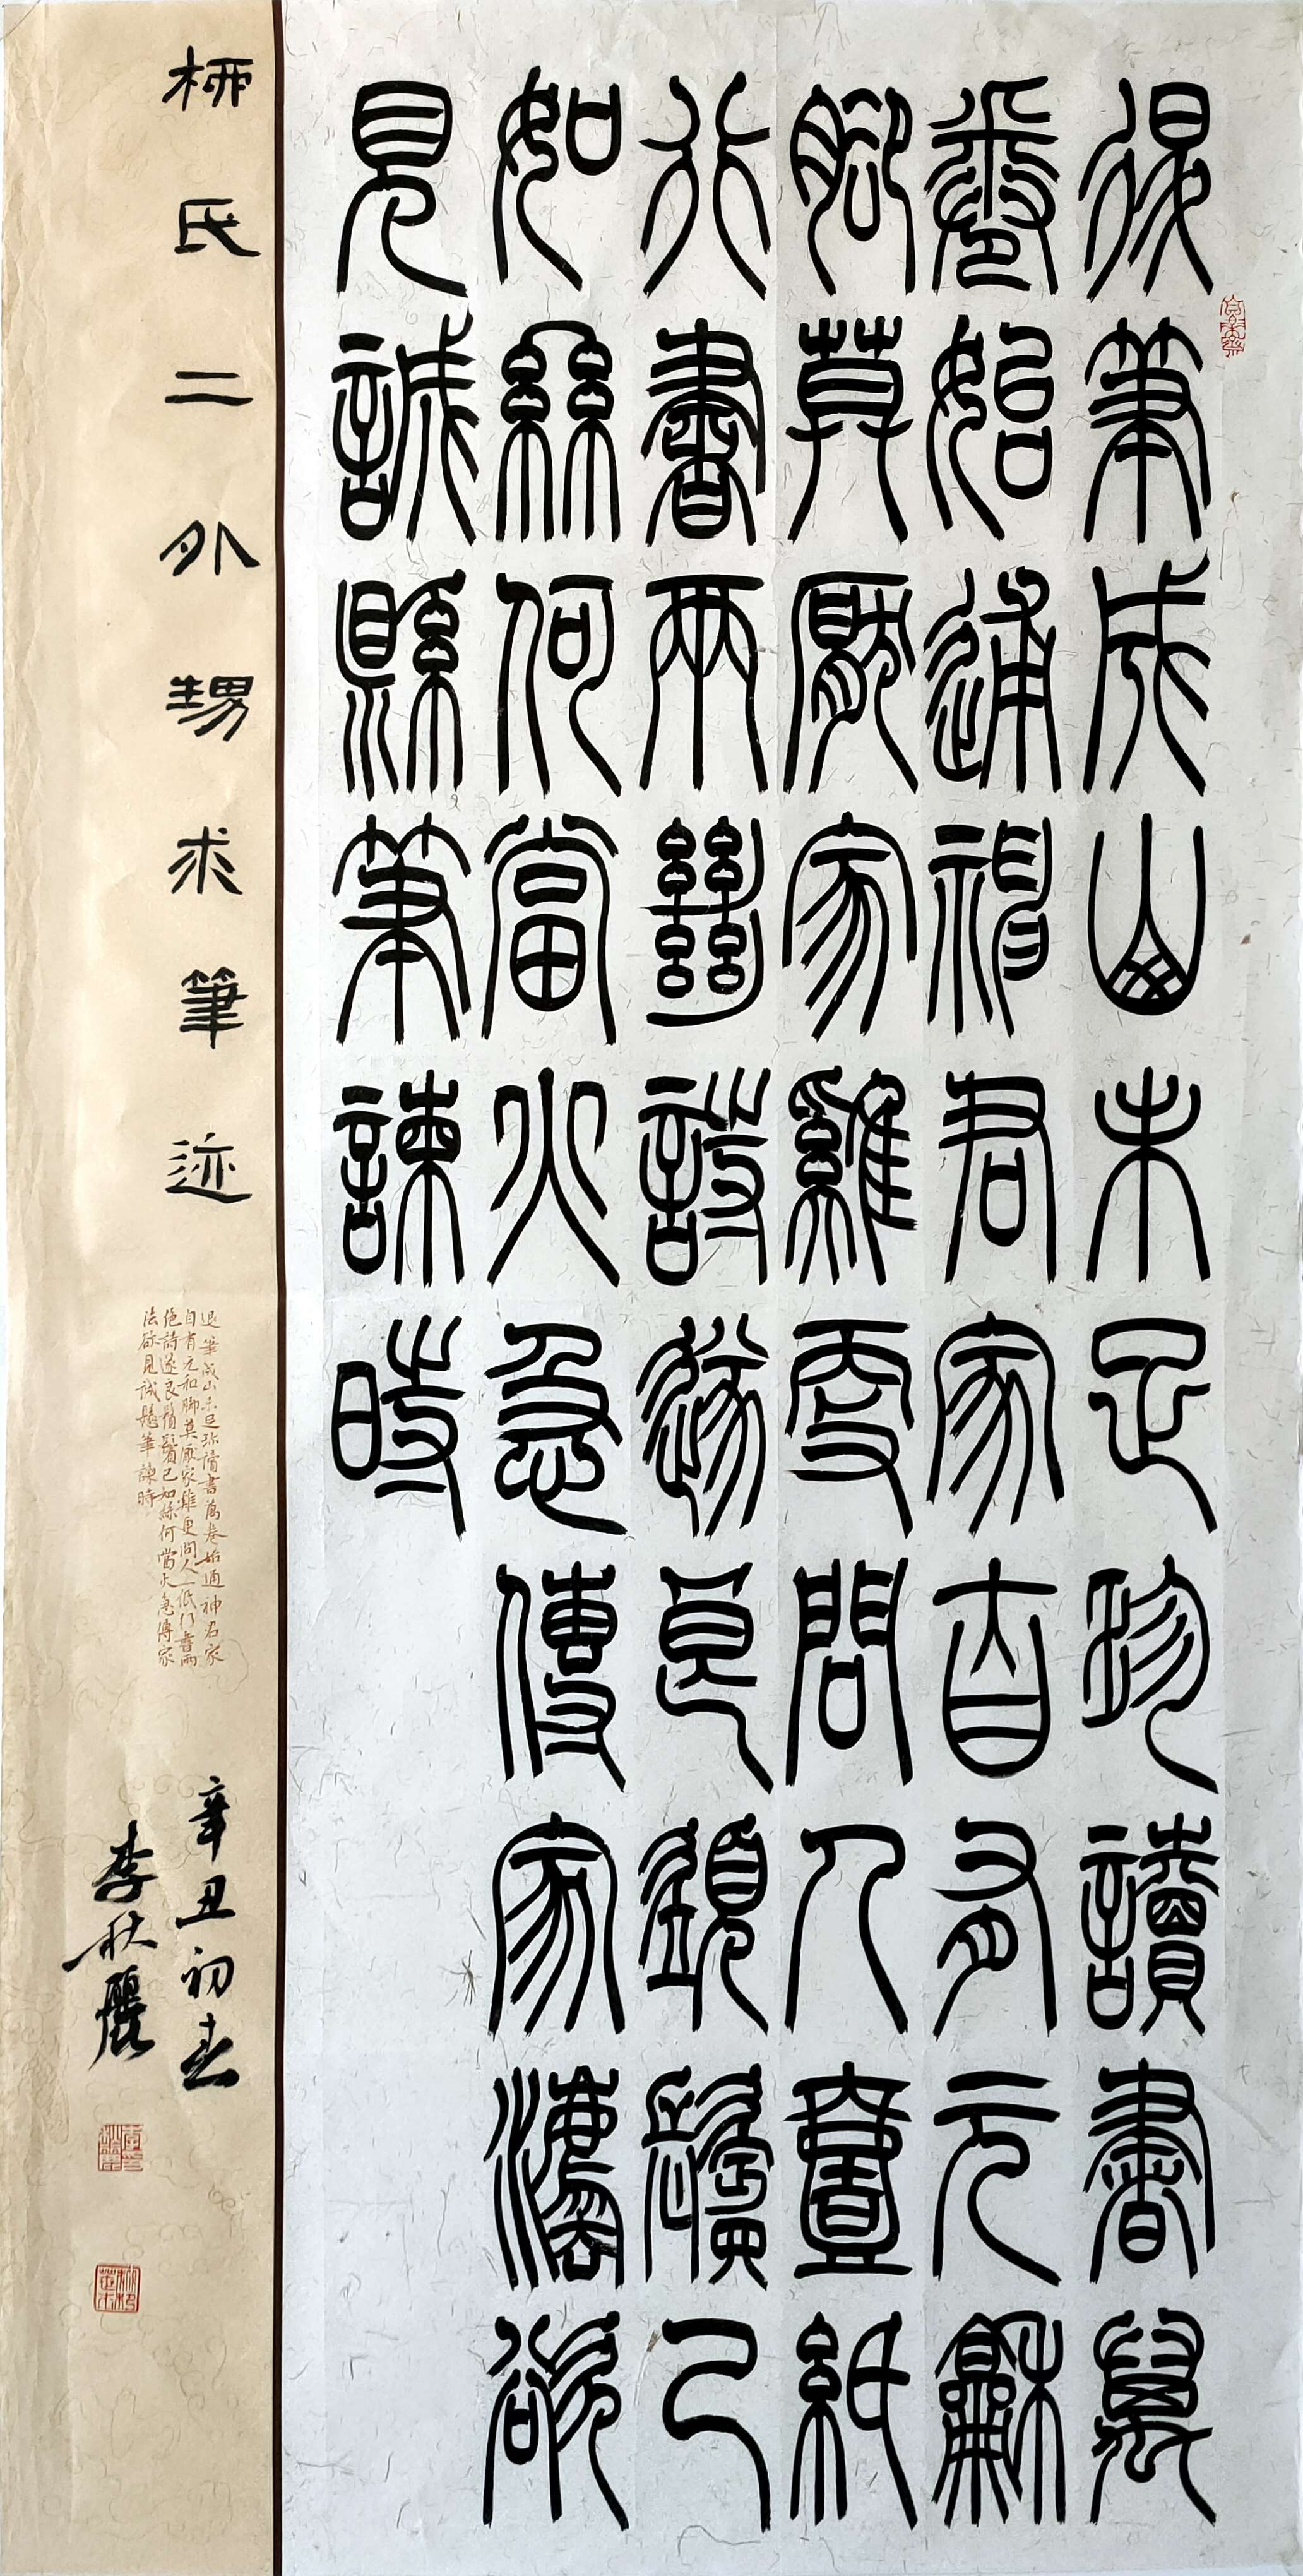 退筆成山未足珍讀書萬
卷始通神君家自有元和
腳莫厭家雞更問人壹紙
行書兩絕詩遂良鬚鬢已
如絲何當火急傳家灋欲
見誠縣筆諫時
柳氏二外甥求筆迹
退筆成山未足珍讀書萬卷始通神君家
自有元和脚莫厭家雞更問人一紙行書兩
絕詩遂良鬚鬢已如絲何當火急傳家
法欲見誠懸筆諫時
辛丑初春
李秋麗